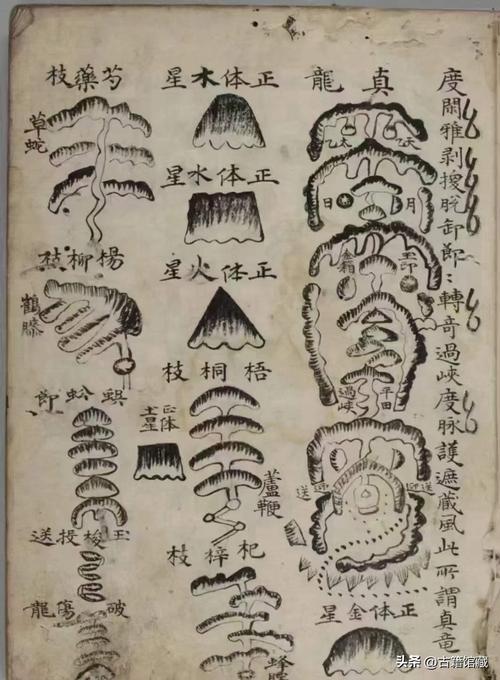 度関雅剥援脱卸節〻轉奇過峽度脉護遮藏風此所謂真竜
真龍
天乙
太乙
月
日
玉印
金箱
平田
過峽
送迎
迎送
正体金星
正体木星
正体水星
正体火星
梧桐枝
正体土星
蘆鞭
杞梓枝
芍藥枝
草蛇
楊柳枝
鶴膝
蜈蚣節
玉梭投送
破傷龍
头条 @古籍馆藏